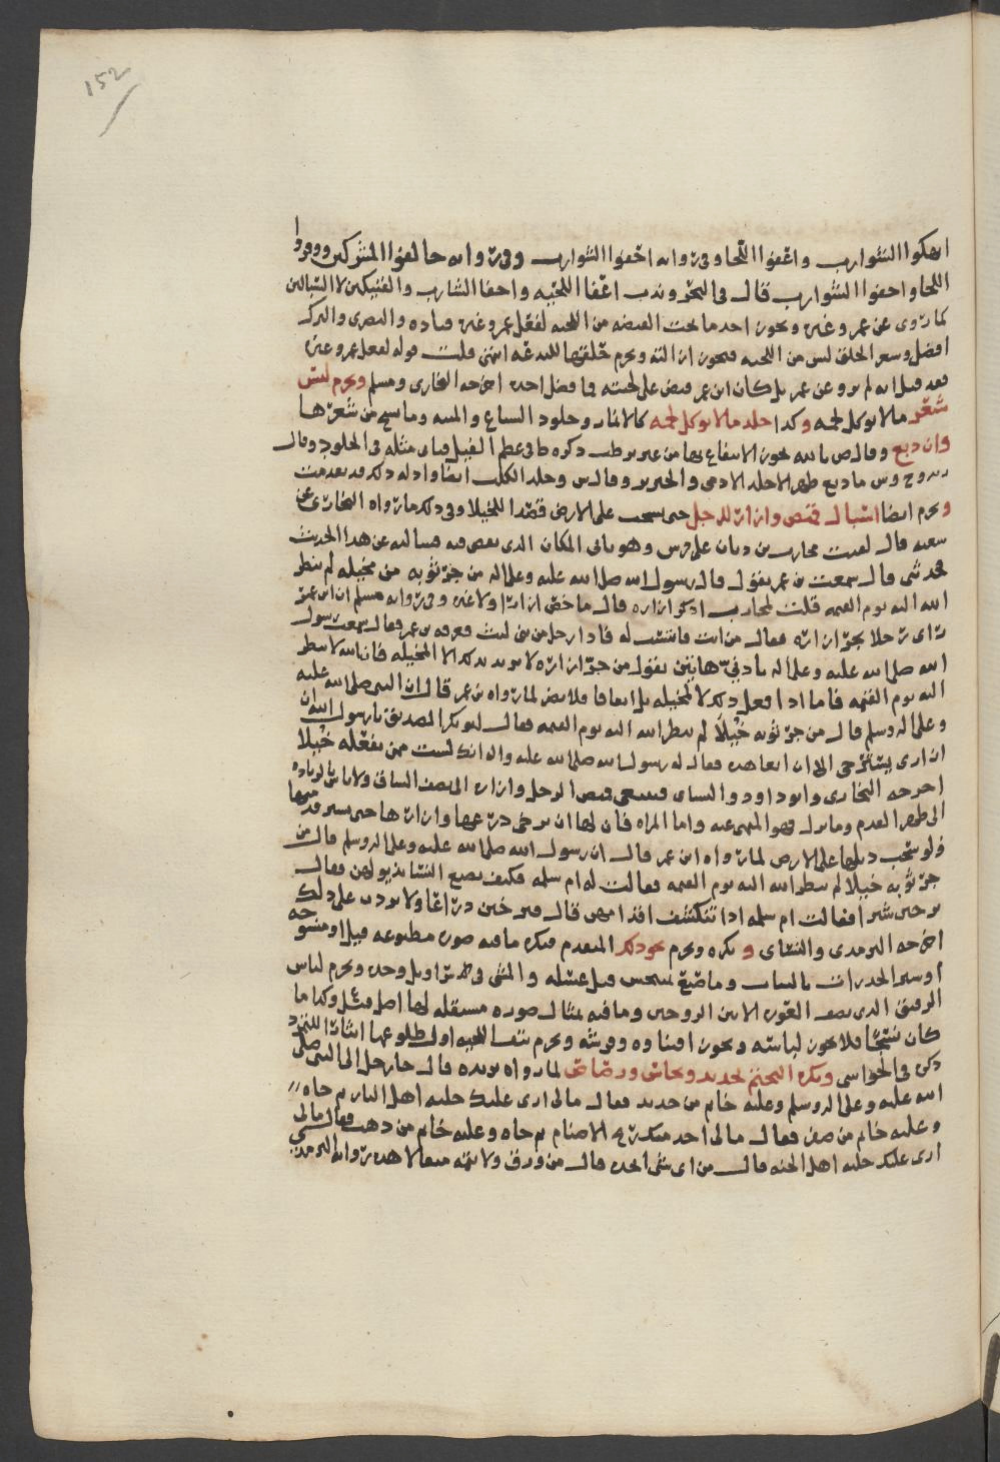 152
انهكوا الشوارب واعفوا اللحا وفي رواية احفوا الشوارب وفي رواية خالفوا المشركين ووفروا
اللحا واحفوا الشوارب قال في البحر وندب اعفا اللحيه واحفا الشارب والفنيكين لا السبالين
كما روي عن عمر وغيره ويجوز اخذ ما تحت القبضه من اللحيه لفعل عمر وغيره قتاده والبصري والترك
افضل وشعر الحلق ليس من اللحيه فيجوز ازالته ويحرم حلقها للبدعه انتهى قلت قوله لفعل عمر وغيره
فقد قيل انه لم يرو عن عمر بل كان ابن عمر قبض على لحيته فما فضل اخذه اخرجه البخاري ومسلم ويحرم لبس
شعر ما لا يوكل لحمه وكدا جلد ما لا يوكل لحمه كالانمار وجلود السباع والميته وما نسج من شعرها
وان دبغ وقال ص بالله يجوز الانتفاع بها من غير ترطب ذكره ط في عظم الفيل قياس مثله في الجلود وقال
وح وش ما دبغ طهر الا جلد الادمي والخنزير وقال ش وجلد الكلب ايضا وادله ذلك قد تقدمت
ويحرم ايضا اسبال قميص وازار للرجل حتى يسحب على الارض قصدا للخيلا وفي ذلك ما رواه البخاري عن
شعبه قال لقيت محارب بن دثار على فرس وهو ياتي المكان الذي يقضي فيه فسالته عن هذا الحديث
فحدثني قال سمعت بن عمر يقول قال رسول الله صلى الله عليه وعلى اله من جر ثوبه من مخيله لم ينظر
الله اليه يوم القيمه قلت لمحارب اذكر ازاره قال ما خص ازارا ولا غيره وفي رواية مسلم ان ابن عمر
راى رجلا يجر ازاره فقال ممن انت فانتسب له فاذا رجل من بني ليث فعرفه بن عمر فقال سمعت رسول
الله صلى الله عليه وعلى اله باذني هاتين يقول من جر ازاره لا يريد بذلك الا المخيله فان الله لا ينظر
اليه يوم القيمه فاما اذا فعل ذلك لا لمخيله بل اتفاقا فلا يضر لما رواه بن عمر قال ان النبي صلى الله عليه
وعلى اله وسلم قال من جر ثوبه خيلا لم ينظر الله اليه يوم القيمه فقال ابو بكر الصديق يا رسول الله ان
ازاري يسترخي الا ان اتعاهده فقال له رسول الله صلى الله عليه واله انك لست ممن يفعله خيلا
اخرجه البخاري وابو داود والنساي فينبغي قميص الرجل وازاره الى نصف الساق ولا باس بالزياده
الى ظهر القدم وما نزل فهو المنهي عنه واما المراه فان لها ان ترخي درعها وازارها حتى يستر قدميها
ولو سحب ذيلها على الارض لما رواه ابن عمر قال ان رسول الله صلى الله عليه وعلى اله وسلم قال من
جر ثوبه خيلا لم ينظر الله اليه يوم القيمه فقالت له ام سلمه فكيف يصنع النسا بذيولهن فقال
يرخين شبرا فقالت ام سلمه اذا تنكشف اقدامهن قال فيرخين دراعا ولا يزدن على ذلك
اخرجه الترمذي والنساي ويكره ويحرم نحو ذلك المتقدم فيكره ما فيه صوره مطبوعه قيل او منسوجه
او ستر الجدران بالثياب وما صبغ بنجس قبل غسله والمشي في سراويل وحده ويحرم لباس
الرقيق الذي يصف العوره الا بين الزوجين وما فيه تمثال صوره مستقله لها اصل ومثل وكذا ما
كان نسجا فلا يجوز لباسه ويجوز افتراشه ويحرم نتف اللحيه اول طلوعها ايثارا للمرد
ذكره في الحواشي ويكره التختم بحديد ونحاس ورصاص لما رواه بريده قال جا رجل الى النبي صلى
الله عليه وعلى اله وسلم وعليه خاتم من حديد فقال مالي ارى عليك حليه اهل النار ثم جاه
وعليه خاتم من صفر فقال مالي اجد منك ريح الاصنام ثم جاه وعليه خاتم من ذهب فقال مالي
ارى عليك حليه اهل الجنه قال من اي شي اتخذه قال من ورق ولا تتمه مثقالا هذه رواية الترمذي